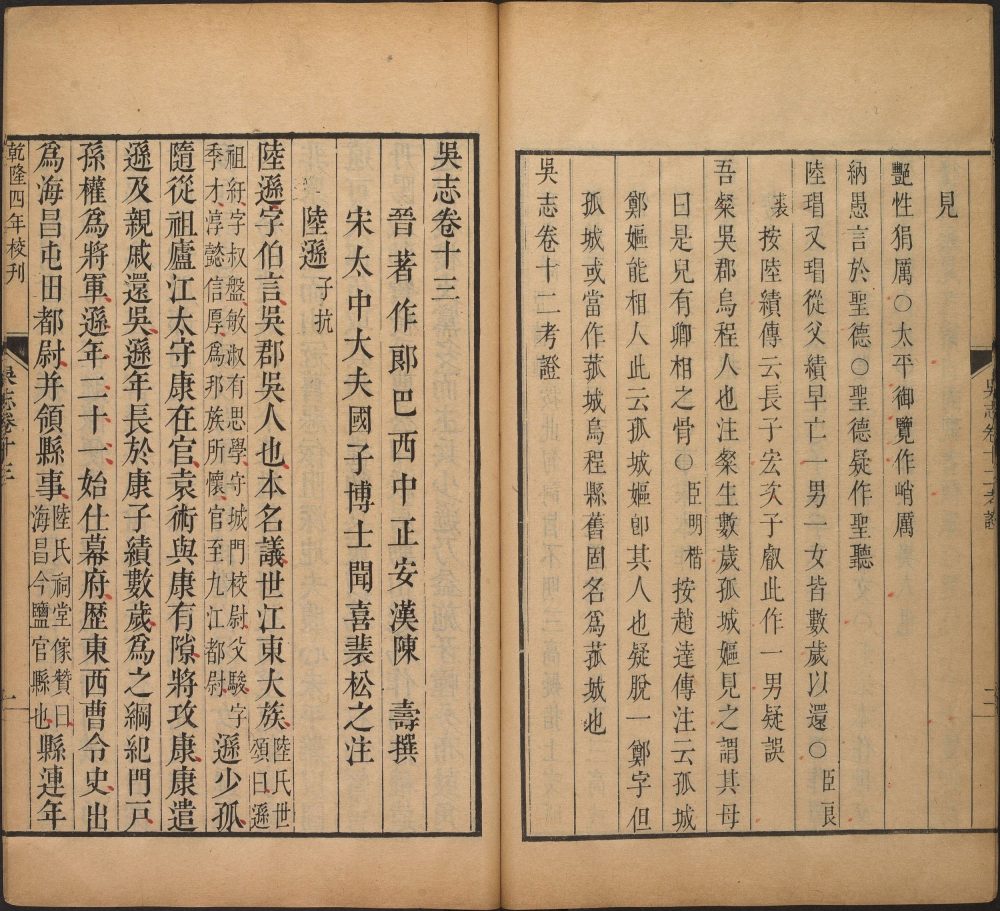 見
艷性狷厲○太平御覽作峭厲
納愚言於聖德○聖德疑作聖聽
陸瑁又瑁從父績早亡一男一女皆數歲以還○臣良
裘按陸績傳云長子宏次子叡此作一男疑誤
吾粲吳郡烏程人也注粲生數歲孤城嫗見之謂其母
曰是兒有卿相之骨○臣明楷按趙達傳注云孤城
鄭嫗能相人此云孤城嫗卽其人也疑脫一鄭字但
孤城或當作菰城烏程縣舊固名爲菰城也
吳志卷十二考證
吳志卷十二考證
二
吳志卷十三
晉著作郎巴西中正安漢陳壽撰
宋太中大夫國子博士聞喜裴松之注
陸遜子抗
陸遜字伯言吳郡吳人也本名議世江東大族陸氏世
頌曰遜
祖紆字叔盤敏淑有思學守城門校尉父駿字
季才淳懿信厚爲邦族所懷官至九江都尉
遜少孤
隨從祖廬江太守康在官袁術與康有隙將攻康康遣
遜及親戚還吳遜年長於康子績數歲爲之綱紀門戸
孫權爲將軍遜年二十一始仕幕府歷東西曹令史出
爲海昌屯田都尉并領縣事陸氏祠堂像贊曰
海昌今鹽官縣也
縣連年
乾隆四年校刊
吳志卷十三
一